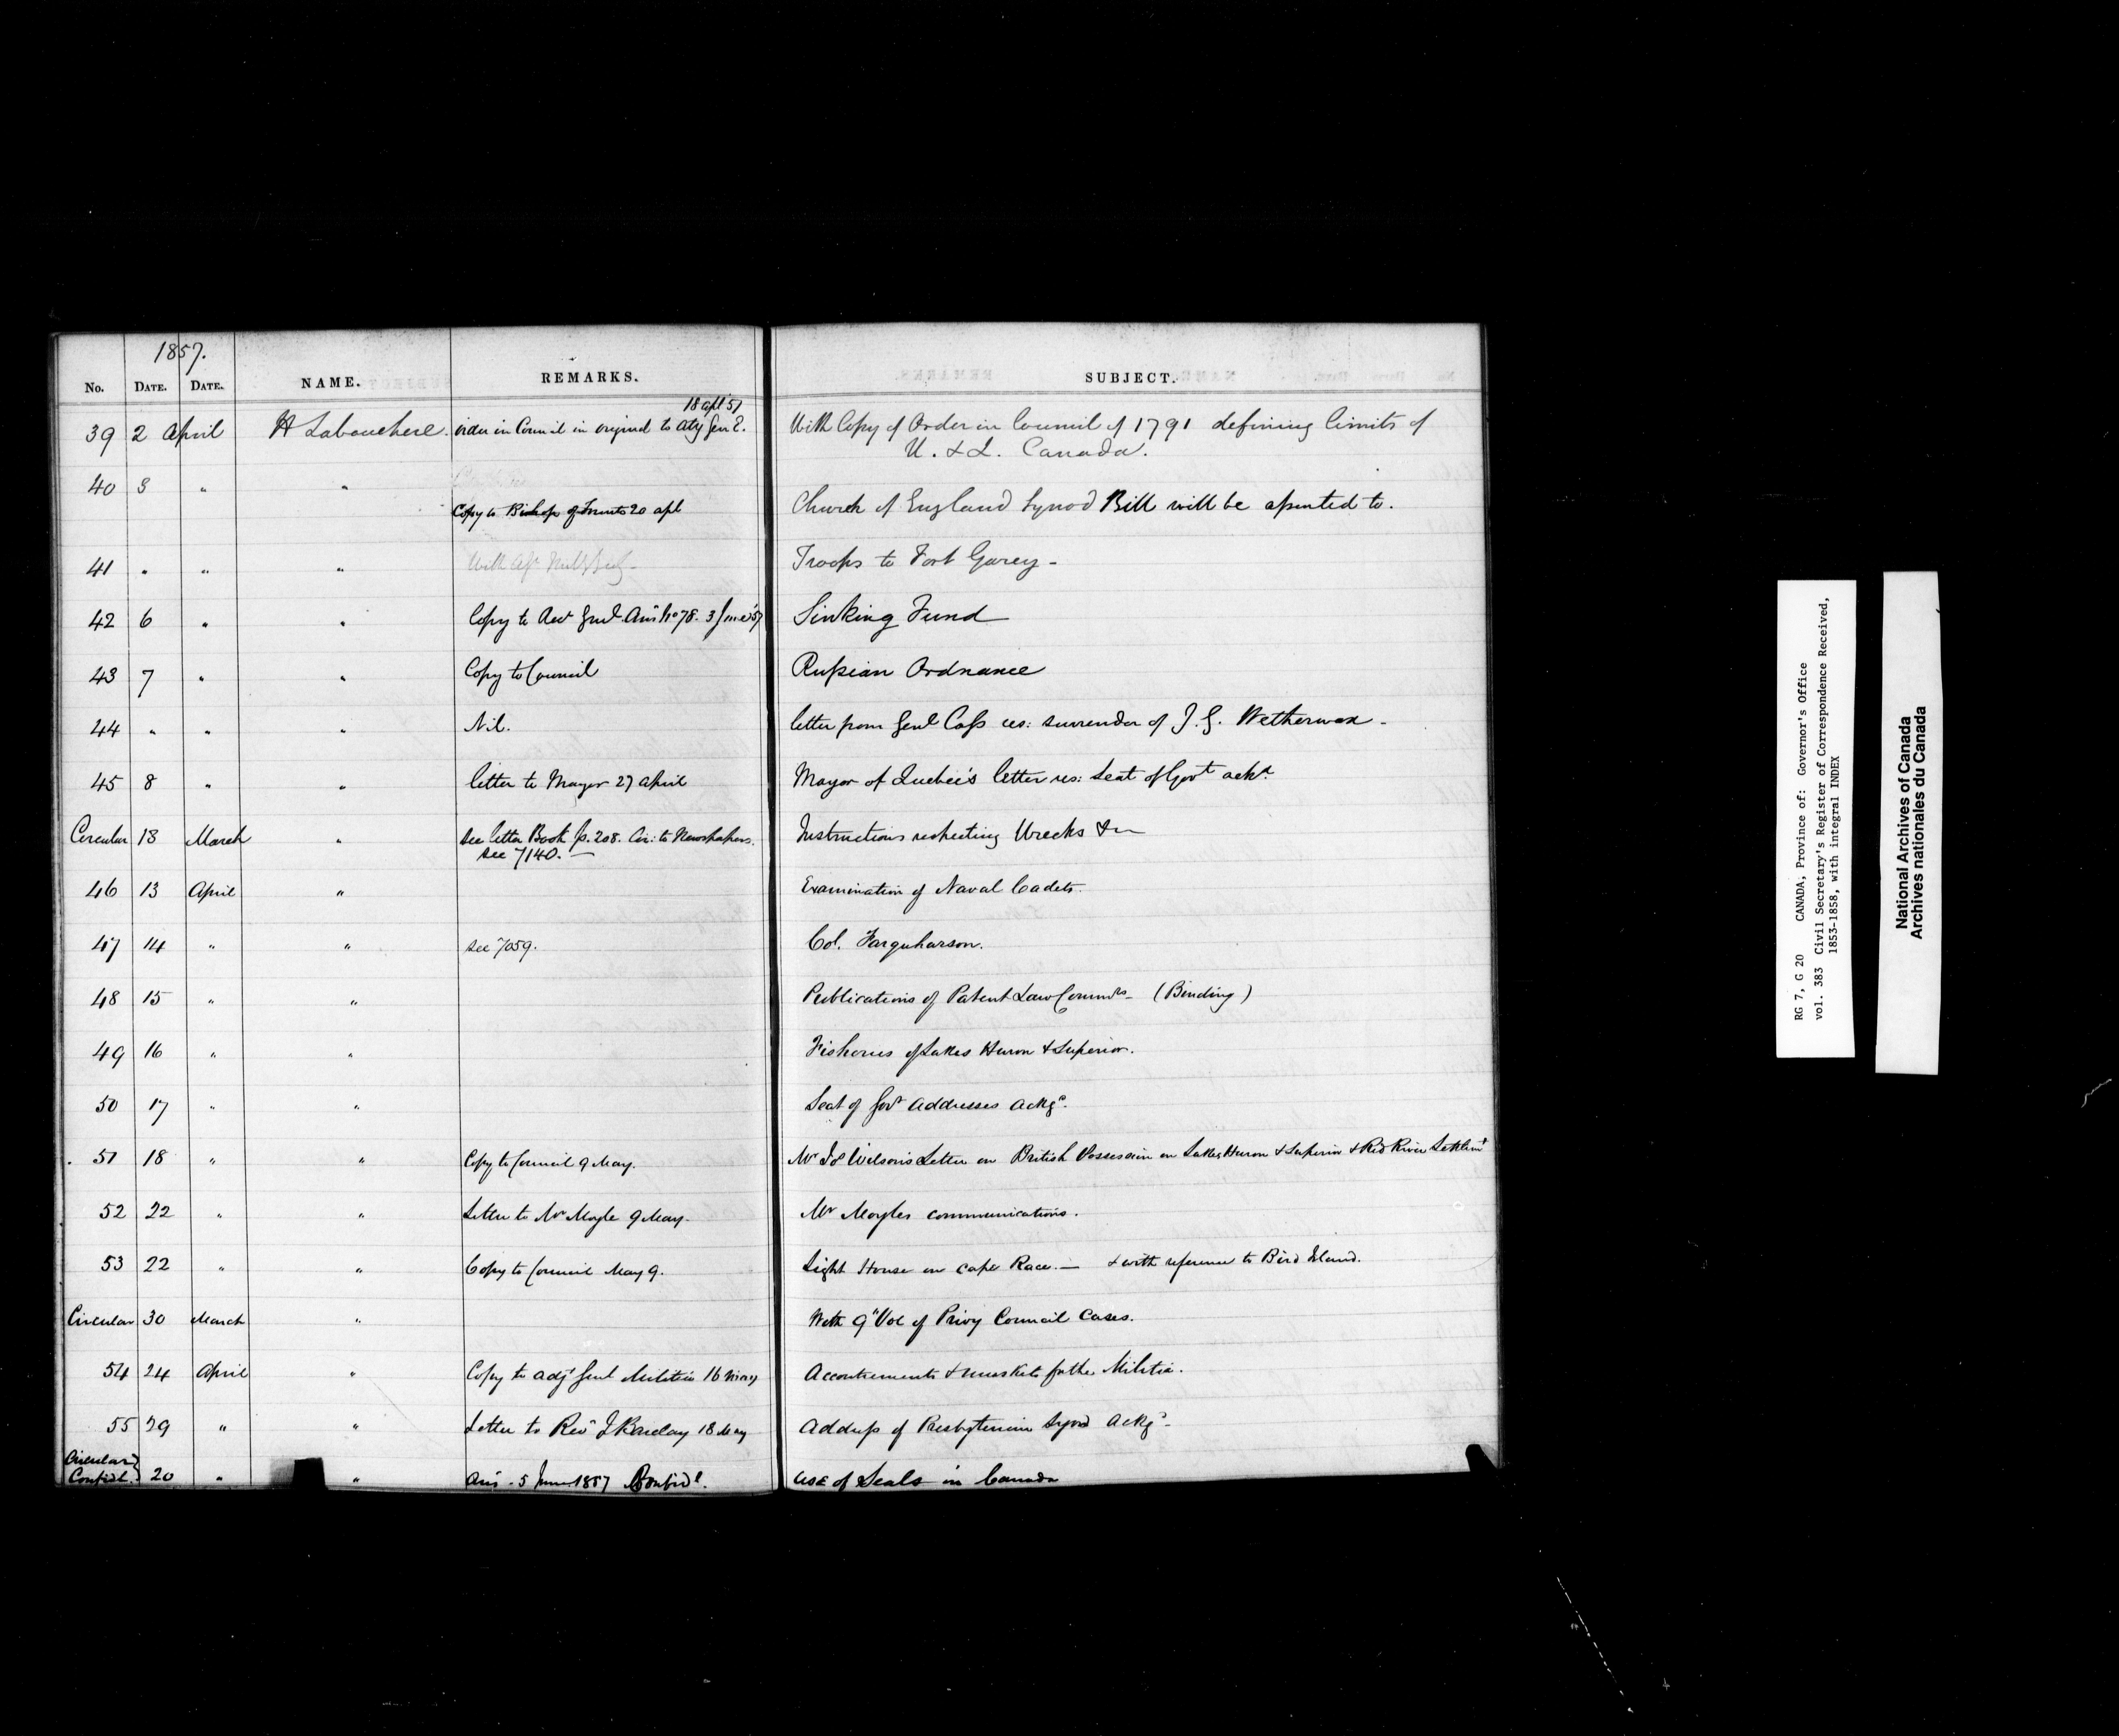 1857.
No. DATE. DATE. NAME. REMARKS. SUBJECT.
18 apl 57
39 2 April H Labouchere. order in Council in original to Atty Gen E. With Copy of Order in Council of 1791 defining limits of
U. & L. Canada.
40 3 " "
Copy to Bishop of Toronto 20 apl Church of England Synod Bill will be assented to.
41 " " " Troops to Fort Garey -
42 6 " " Copy to Genl. Ans No 78. 3 June 57 Sinking Fund
43 7 " " Copy to Council Russian Ordnance
44 " " " Nil. letter from Genl Cass res: surrender of J. G. Wetherwax -
45 8 " " letter to Mayor 27 April Mayor of Quebec's letter res: Seat of Govt ackd.
Circular 13 March " See letter Book p. 208. Cir: to Newspapers. Instructions respecting Wrecks &c
See 7140. —
46 13 April " Examination of Naval Cadets.
47 14 " " See 7059. Col. Farquharson.
48 15 " " Publications of Patent Law Commrs - (Binding)
49 16 " " Fisheries of Lakes Huron & Superior.
50 17 " " Seat of Govt Addresses Ackg.
51 18 " " Copy to Council 9 May. Mr Wilson's Letter on British Possession on Lakes Huron & Superior & Red River Settlemt
52 22 " " Letter to Mr Moyle 9 May. Mr Moyles communications.
53 22 " " Copy to Council May 9. Light House on Cape Race. — & with reference to Bird Island.
Circular 30 March " With 9" Vol of Privy Council Cases.
54 24 April " Copy to Adjt Genl Militia 16 May Accoutrements & muskets for the Militia.
55 29 " " Letter to Revd J Barclay 18 May Address of Presbyterian Synod Ackgd -
Circular }
Confidl. 20 " " Ans - 5 June 1857 Confidl. Use of Seals in Canada
RG 7, G 20 CANADA, Province of: Governor's Office
vol. 383 Civil Secretary's Register of Correspondence Received,
1853-1858, with integral INDEX
National Archives of Canada
Archives nationales du Canada